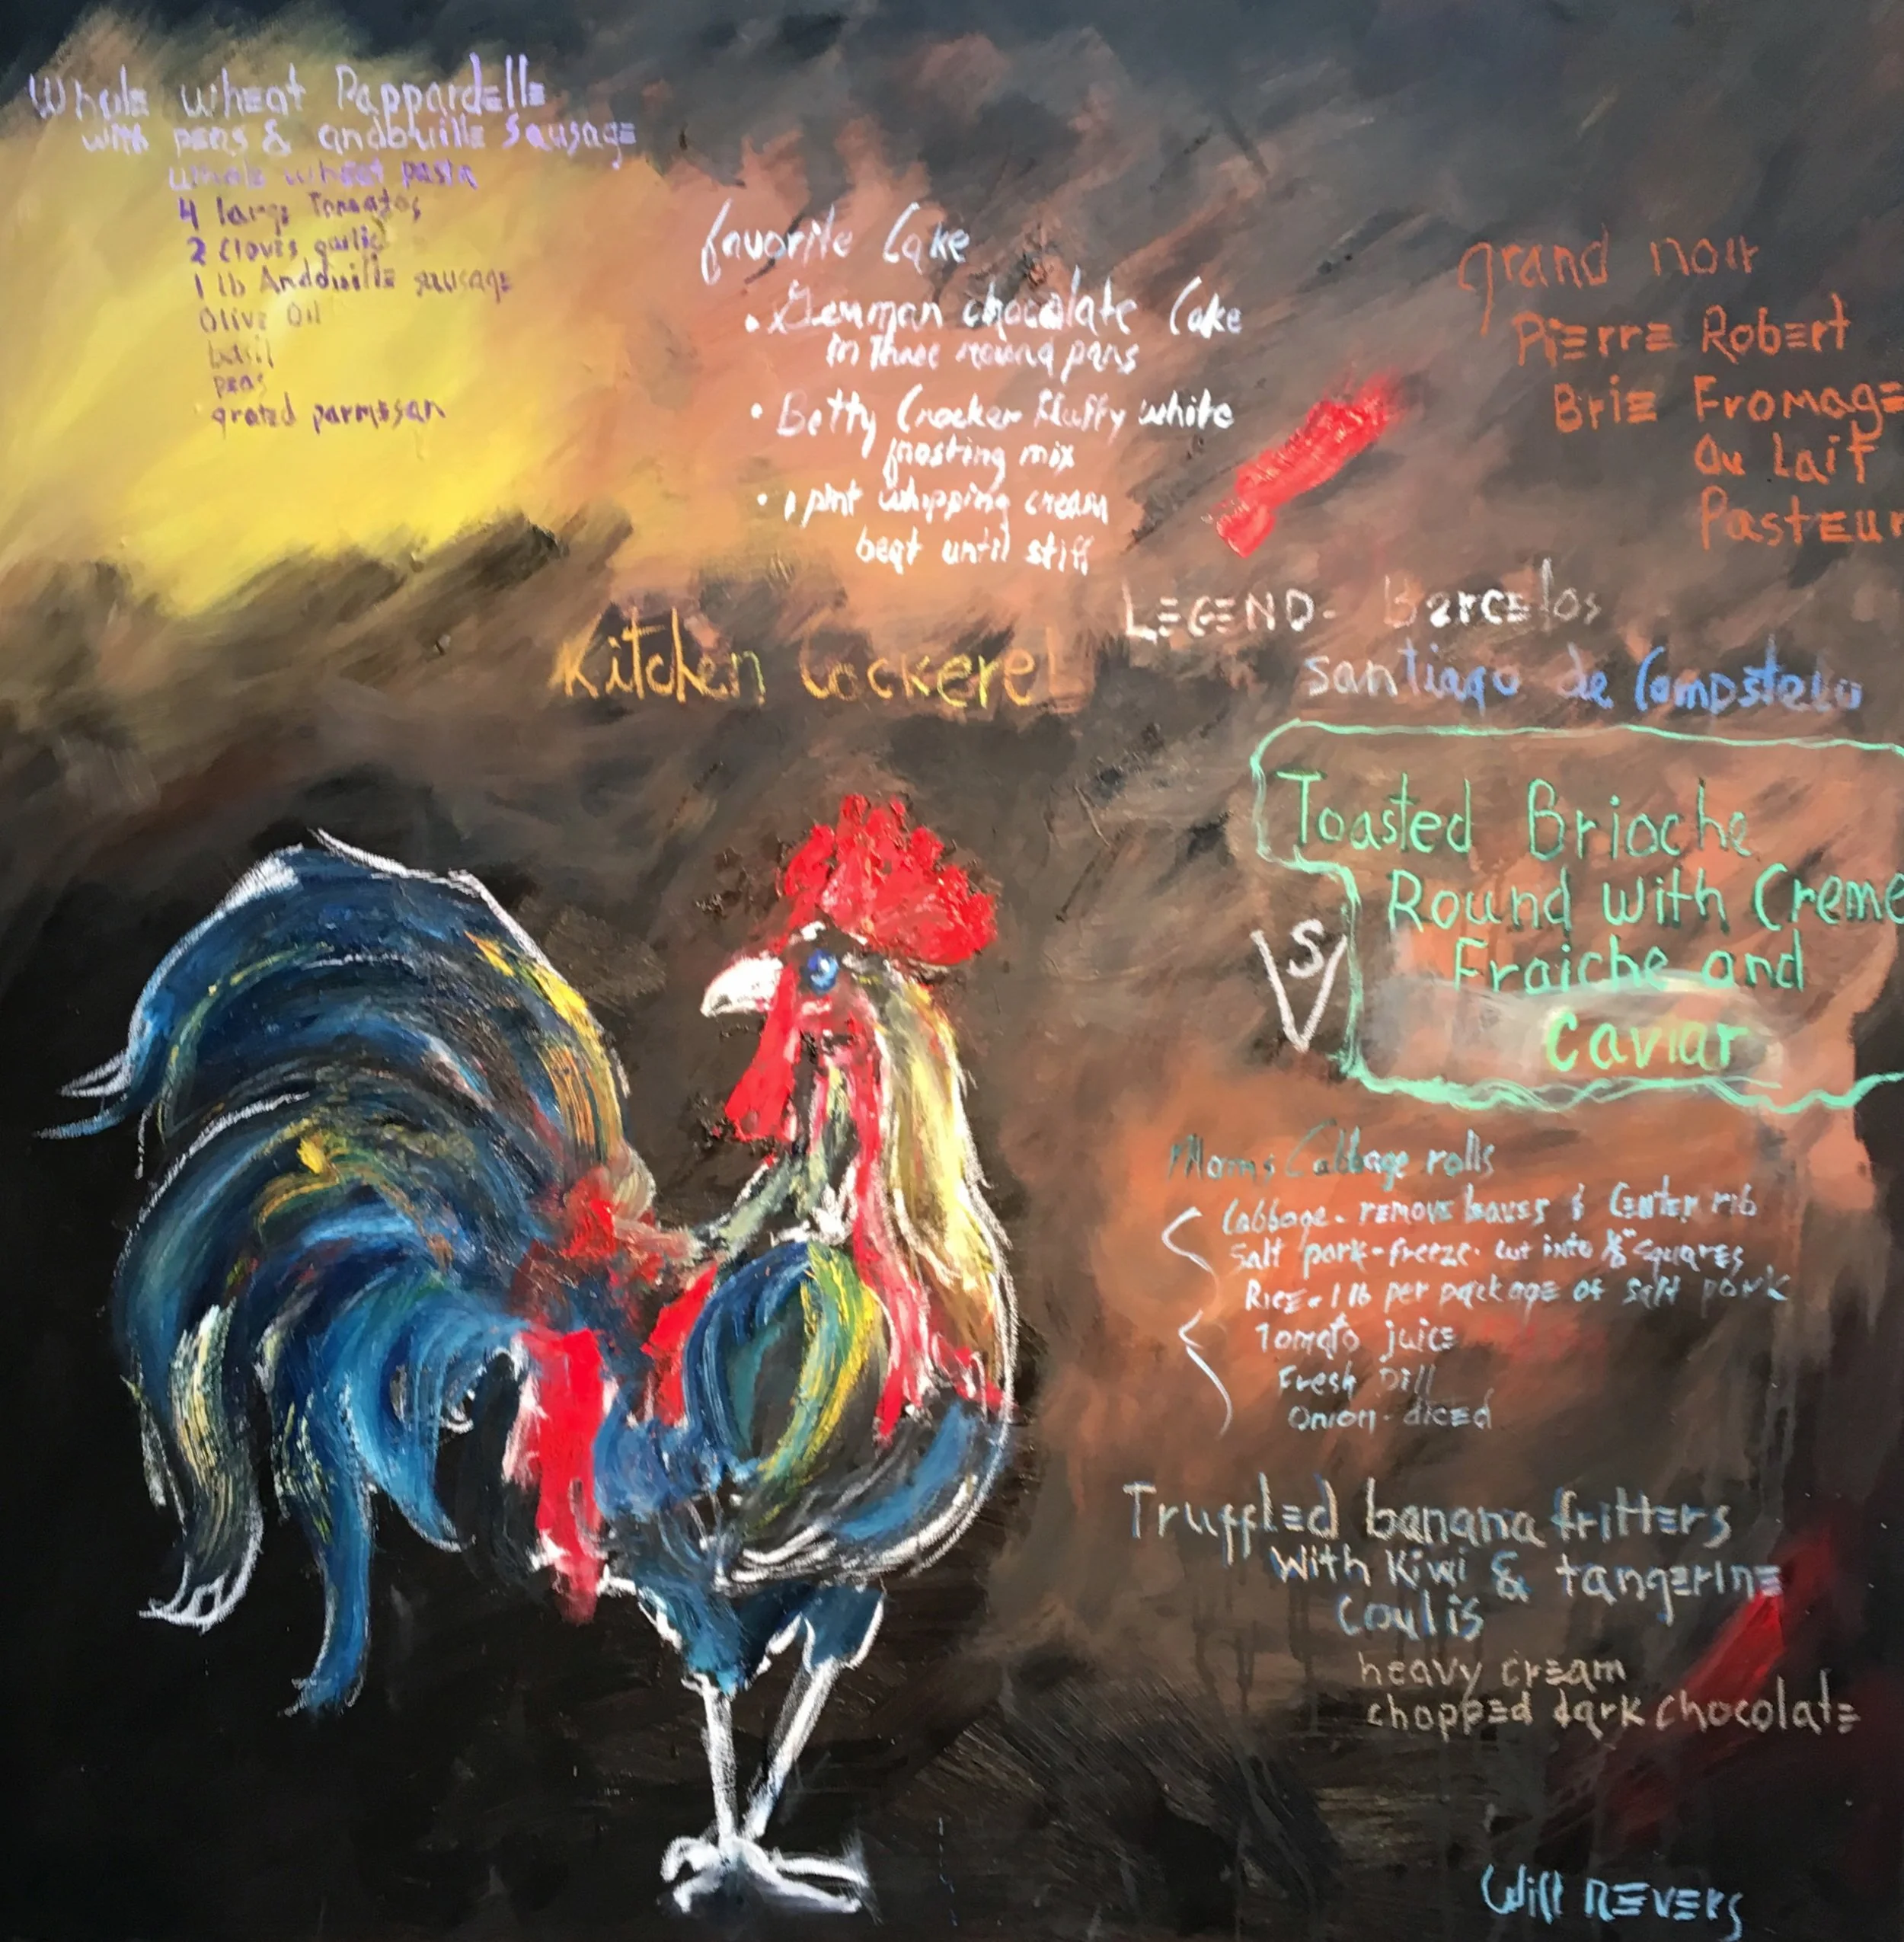 Whole wheat Pappardelle
with peas & andouille Sausage
whole wheat pasta
4 large Tomatos
2 Cloves garlic
1 lb Andouille sausage
Olive Oil
basil
peas
grated parmesan
favorite Cake
• German chocolate Cake
in three round pans
• Betty Crocker Fluffy white
frosting mix
• 1 pint whipping cream
beat until stiff
grand noir
Pierre Robert
Brie Fromage
Au Lait
Pasteur
Kitchen Cockerel
LEGEND- Barcelos
santiago de Compstela
Toasted Brioche
Round with Creme
Fraiche and
Caviar
VS
Moms Cabbage rolls
Cabbage - remove leaves & Center rib
Salt pork - freeze - cut into ⅛" squares
Rice - 1 lb per package of salt pork
Tomato juice
Fresh Dill
Onion - diced
Truffled banana fritters
With Kiwi & tangerine
Coulis
heavy cream
chopped dark chocolate
Will REVERS